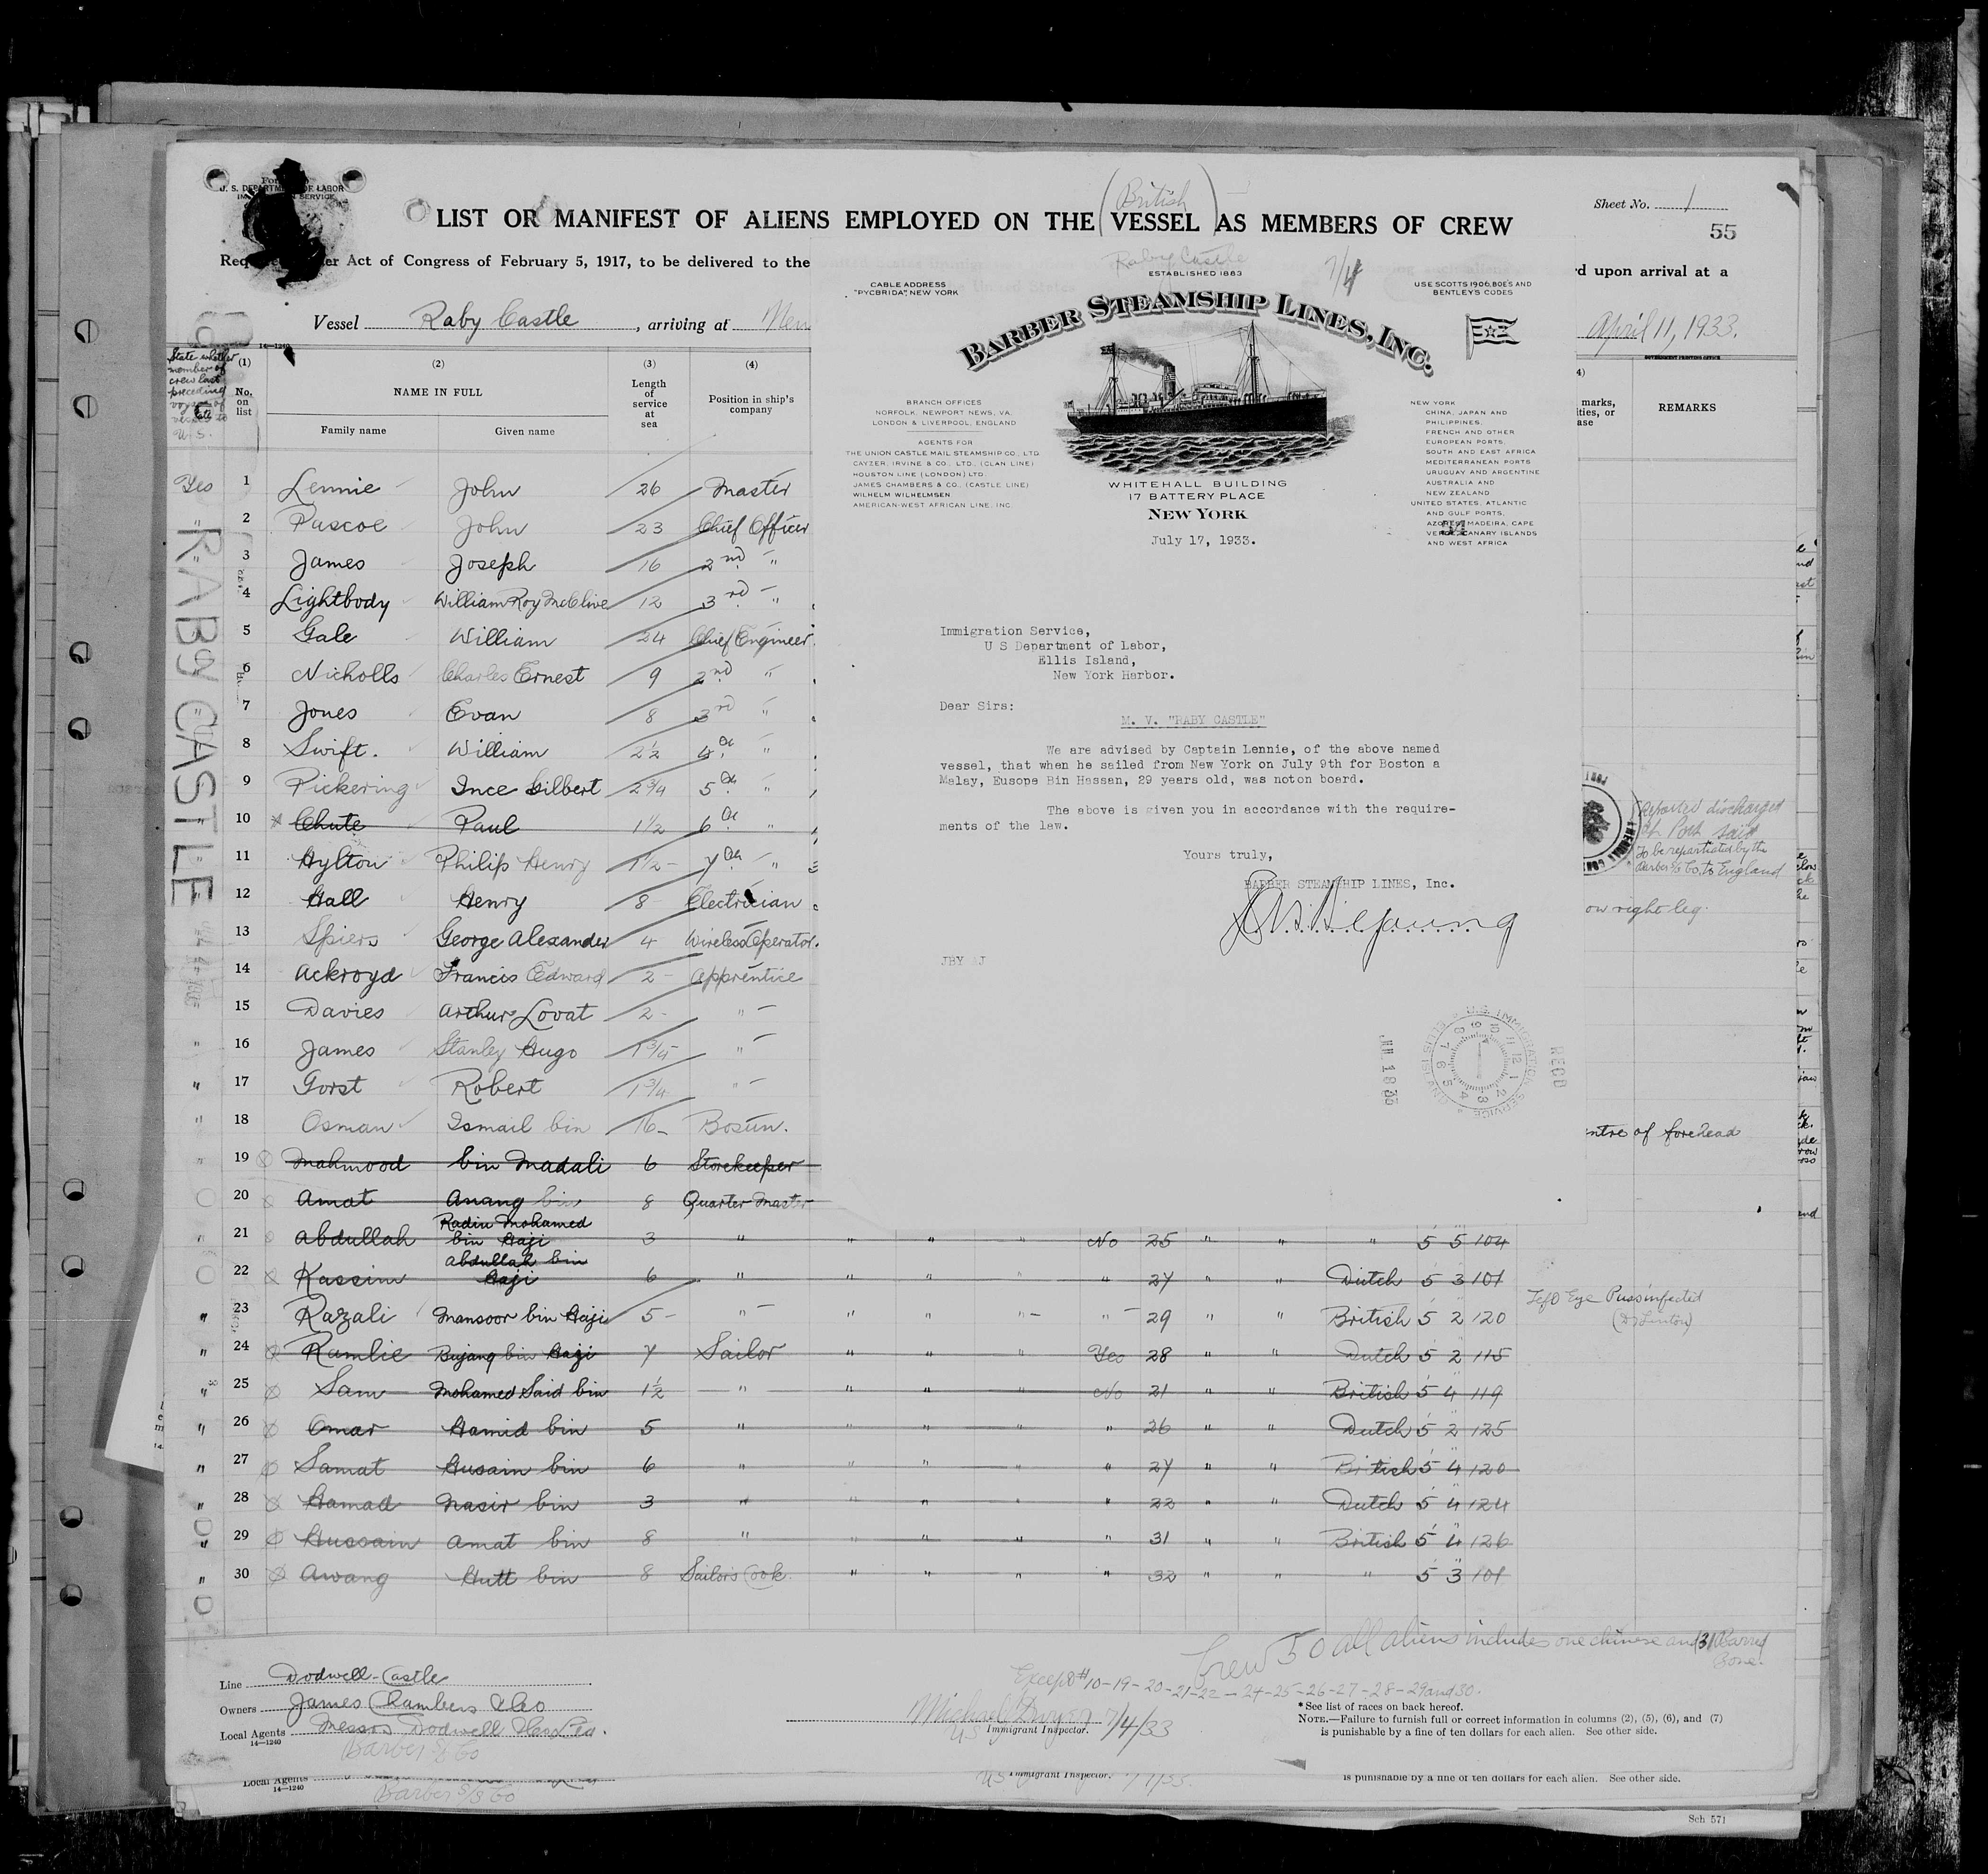 LIST OR MANIFEST OF ALIENS EMPLOYED ON THE (British) VESSEL AS MEMBERS OF CREW
Sheet No. 1
55
Act of Congress of February 5, 1917, to be delivered to the
rd upon arrival at a
Vessel Raby Castle, arriving at New
April 11, 1933.
State whether member of crew last preceding
(1) (2) (3) (4)
No. on list
NAME IN FULL
Family name Given name
Length of service at sea
Position in ship's company
REMARKS
RABY CASTLE
Yes 1 Lennie John 26 Master
" 2 Pascoe John 23 Chief Officer
3 James Joseph 16 2nd "
4 Lightbody William Roy McClive 12 3rd "
5 Gale William 24 Chief Engineer
6 Nicholls Charles Ernest 9 2nd "
7 Jones Evan 8 3rd "
8 Swift. William 2½ 4th "
9 Pickering Ince Gilbert 2¾ 5th "
10 Chute Paul 1½ 6th "
11 Hylton Philip Henry 1½ 7th "
12 Hall Henry 8 Electrician
13 Spiers George Alexander 4 Wireless Operator.
14 Ackroyd Francis Edward 2 Apprentice
15 Davies Arthur Lovat 2 "
16 James Stanley Hugo 1¾ "
" 17 Gorst Robert 1¾ "
" 18 Osman Ismail bin 16 Bosun.
" 19 Mahmood bin Madali 6 Storekeeper
20 Amat Anang bin 8 Quarter Master
" 21 Abdullah Radin Mohamed bin Haji 3 " " " " No 25 " " " 5 5 104
22 Kassim Abdullah bin Haji 6 " " " " " 27 " " Dutch 5 3 101
" 23 Razali Mansoor bin Haji 5 " " " " " 29 " " British 5 2 120
Left Eye Puss infected
" 24 Ramlie Bujang bin Haji 7 Sailor " " " Yes 28 " " Dutch 5 2 115
" 25 Sam Mohamed Said bin 1½ " " " " No 21 " " British 5 4 119
" 26 Omar Hamid bin 5 " " " " " 26 " " Dutch 5 2 125
" 27 Samat Husain bin 6 " " " " " 27 " " British 5 4 120
" 28 Hamad Nasir bin 3 " " " " " 22 " " Dutch 5 4 124
" 29 Hussain Amat bin 8 " " " " " 31 " " British 5 4 126
" 30 Awang Hutt bin 8 Sailors Cook. " " " " 32 " " " 5 3 101
Reported discharged
at Port Said
To be repatriated by the
Barber S/S Co. to England
ow right leg.
entre of forehead
Raby Castle
7/4
ESTABLISHED 1883
CABLE ADDRESS
"PYCBRIDA", NEW YORK
USE SCOTTS 1906, BOE'S AND
BENTLEY'S CODES
BARBER STEAMSHIP LINES, INC.
BRANCH OFFICES
NORFOLK, NEWPORT NEWS, VA.
LONDON & LIVERPOOL, ENGLAND
AGENTS FOR
THE UNION CASTLE MAIL STEAMSHIP CO., LTD.
CAYZER, IRVINE & CO., LTD., (CLAN LINE)
HOUSTON LINE (LONDON) LTD.
JAMES CHAMBERS & CO., (CASTLE LINE)
WILHELM WILHELMSEN
AMERICAN-WEST AFRICAN LINE, INC.
NEW YORK
CHINA, JAPAN AND
PHILIPPINES,
FRENCH AND OTHER
EUROPEAN PORTS,
SOUTH AND EAST AFRICA
MEDITERRANEAN PORTS
URUGUAY AND ARGENTINE
AUSTRALIA AND
NEW ZEALAND
UNITED STATES, ATLANTIC
AND GULF PORTS,
AZORES, MADEIRA, CAPE
VERDE, CANARY ISLANDS
AND WEST AFRICA
WHITEHALL BUILDING
17 BATTERY PLACE
NEW YORK
July 17, 1933.
Immigration Service,
U S Department of Labor,
Ellis Island,
New York Harbor.
Dear Sirs:
M. V. "RABY CASTLE"
We are advised by Captain Lennie, of the above named
vessel, that when he sailed from New York on July 9th for Boston a
Malay, Eusope Bin Hassan, 29 years old, was noton board.
The above is given you in accordance with the require-
ments of the law.
Yours truly,
BARBER STEAMSHIP LINES, Inc.
JBY AJ
RECD
Crew 50 all aliens includes one chinese and 31 Barred Zone.
Except # 10-19-20-21-22-24-25-26-27-28-29 and 30.
Line Dodwell-Castle
Owners James Chambers & Co
Local Agents Messrs Dodwell
14—1240
Barber S/S Co
Immigrant Inspector. 7/4/33
*See list of races on back hereof.
NOTE.—Failure to furnish full or correct information in columns (2), (5), (6), and (7)
is punishable by a fine of ten dollars for each alien. See other side.
Local Agents
14—1240
Barber S/S Co
US Immigrant Inspector.
is punishable by a fine of ten dollars for each alien. See other side.
Sch 571